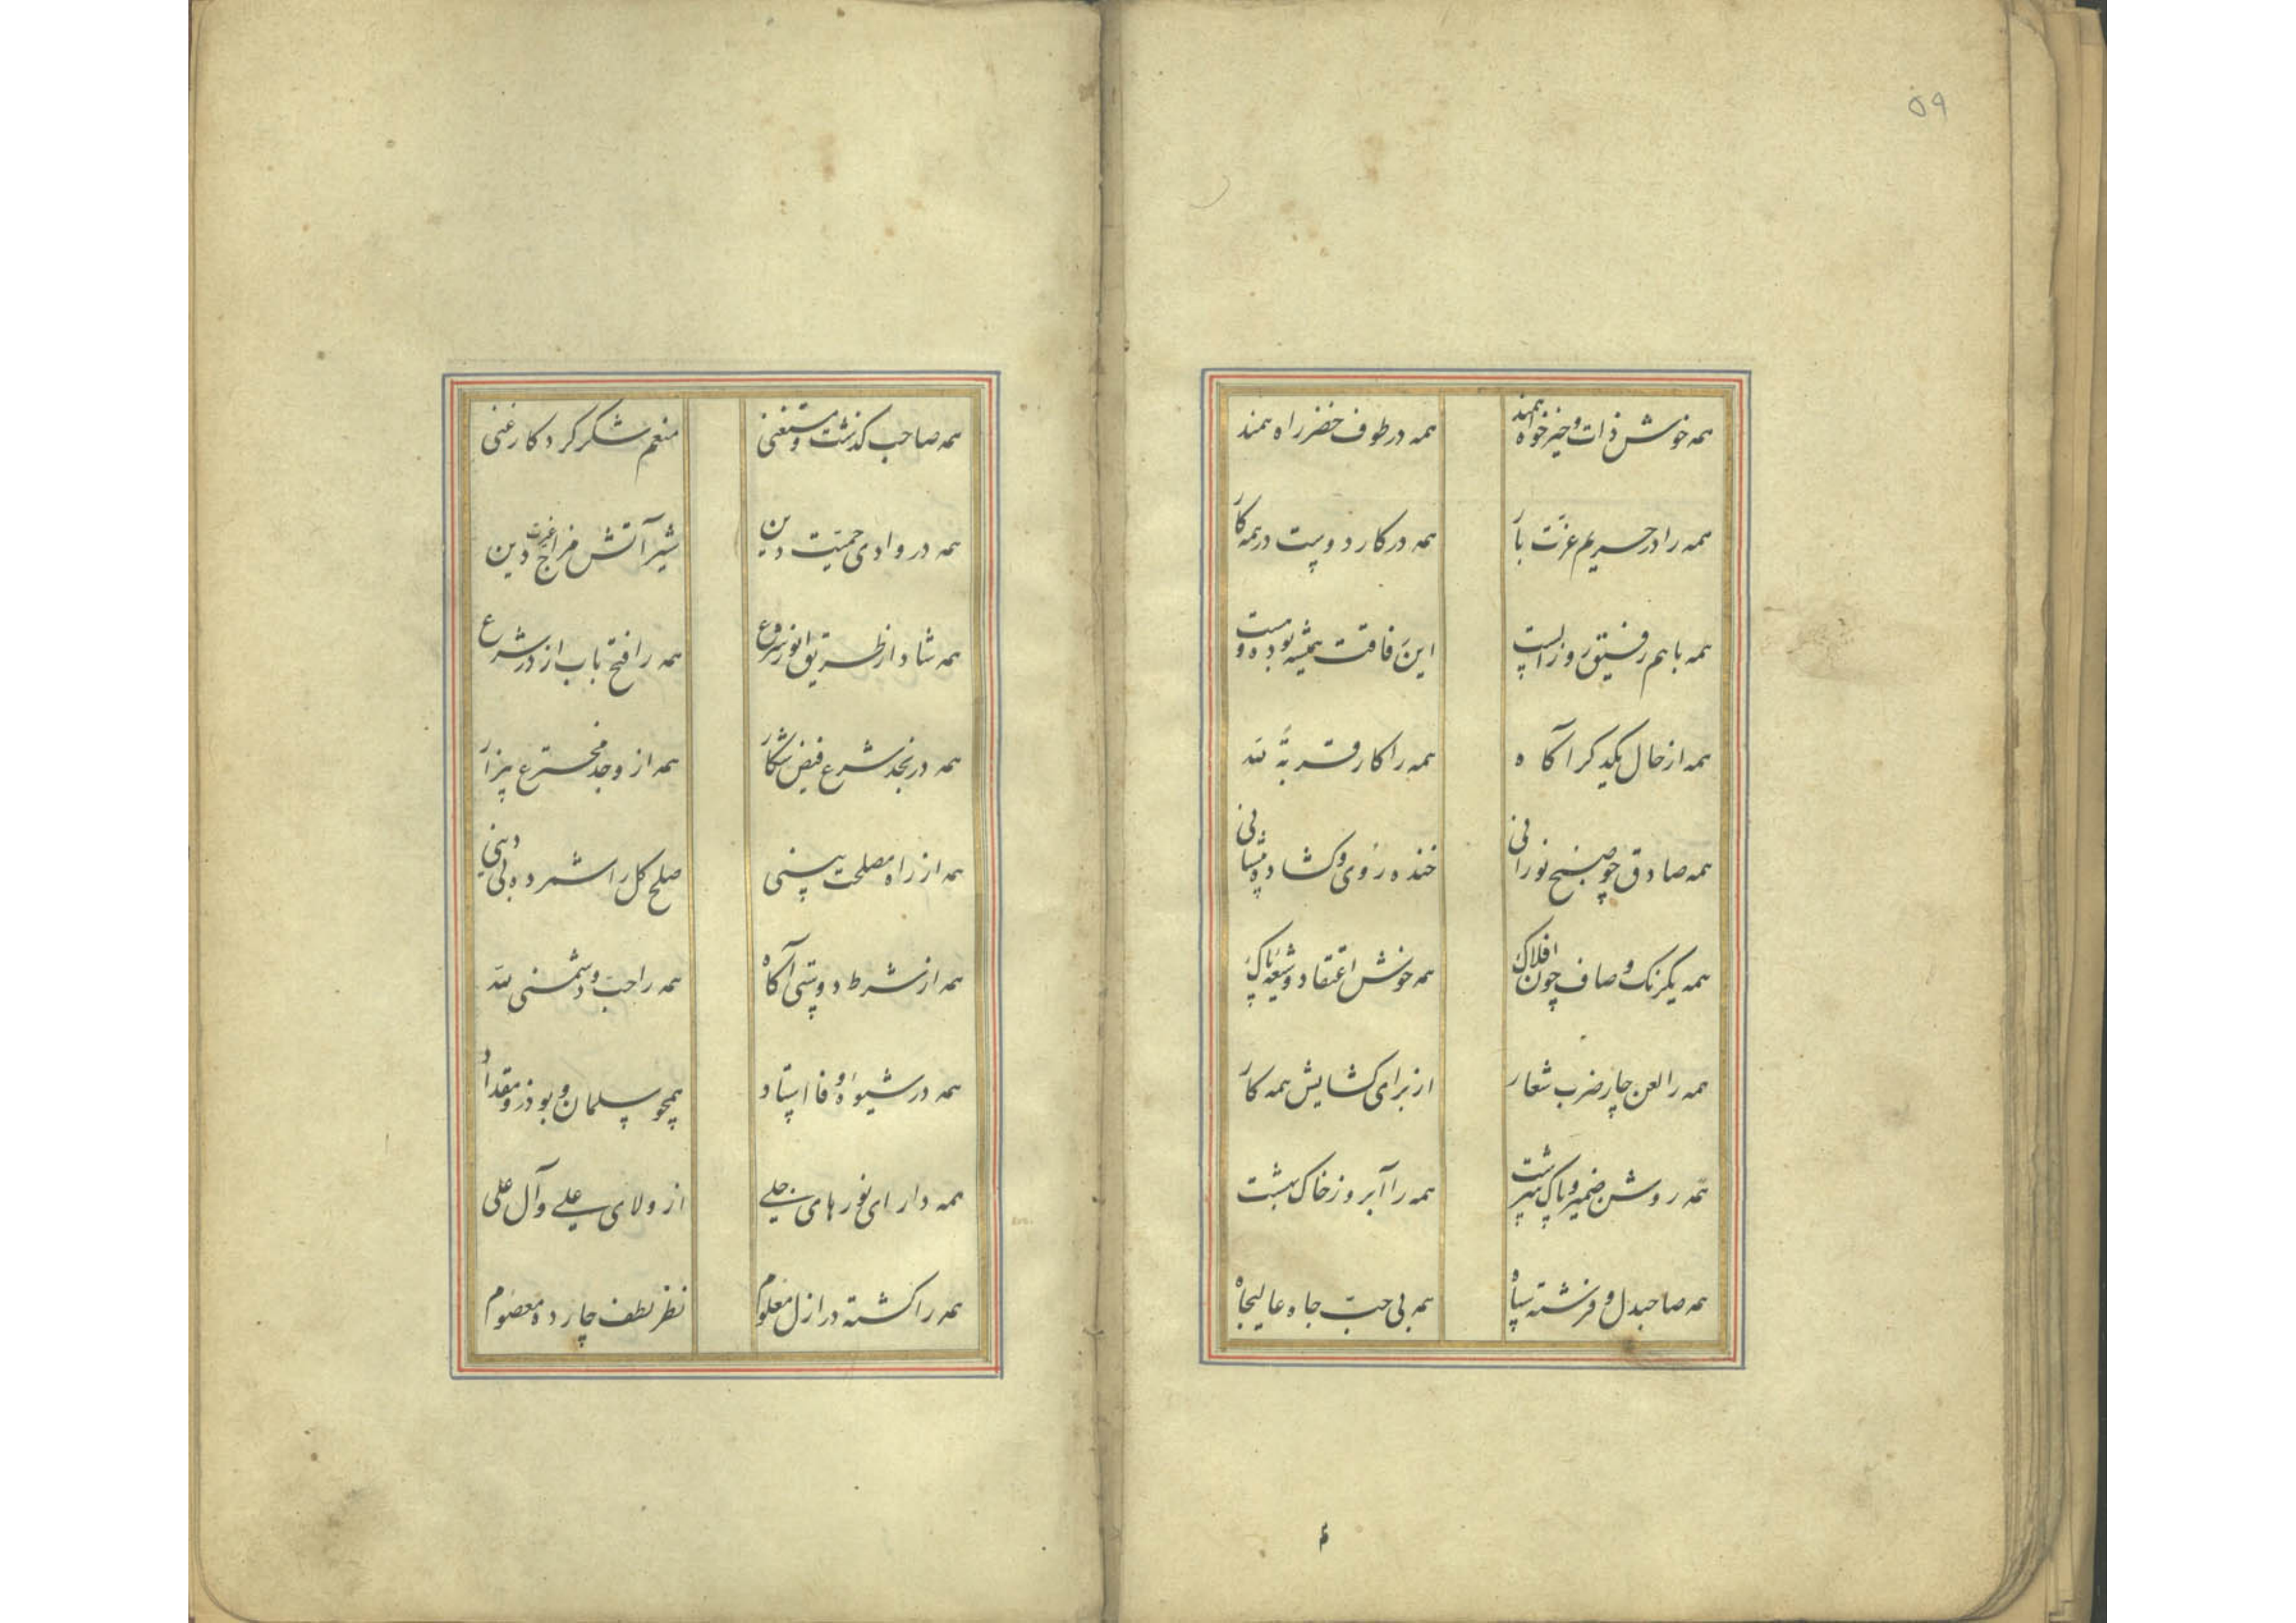 ۵۹
همه خوش ذات و خیرخواه همند همه در طوف خضر راه همند
همه را در حریم عزت بار همه در کار دوست در همه کار
همه باهم رفیق روز الست این رفاقت همیشه بوده و هست
همه از حال یکدگر آگاه همه را کار قربة لله
همه صادق چو صبح نورانی خنده روی و گشاده پیشانی
همه یکرنگ و صاف چون افلاک همه خوش اعتقاد و شیعه پاک
همه را لعن چار ضرب شعار از برای گشایش همه کار
همه روشن ضمیر و پاک سرشت همه را آبرو ز خاک بهشت
همه صاحبدل و فرشته سپاه همه بی حب جاه و عالیجاه
همه صاحب گذشت و مستغنی منعم شکر کردگار غنی
همه در وادی حمیت دین شیر آتش مزاج غیرت دین
همه شاد از طریق انور شرع همه را فتح باب از در شرع
همه در نجد شرع فیض شکار همه از وجد مخترع بیزار
همه از راه مصلحت بینی صلح کل را شمرده بی دینی
همه از شرط دوستی آگاه همه را حب و دشمنی لله
همه در شیوه وفا استاد همچو سلمان و بوذر و مقداد
همه دارای نورهای جلی از ولای علی و آل علی
همه را گشته در ازل معلوم نظر لطف چارده معصوم